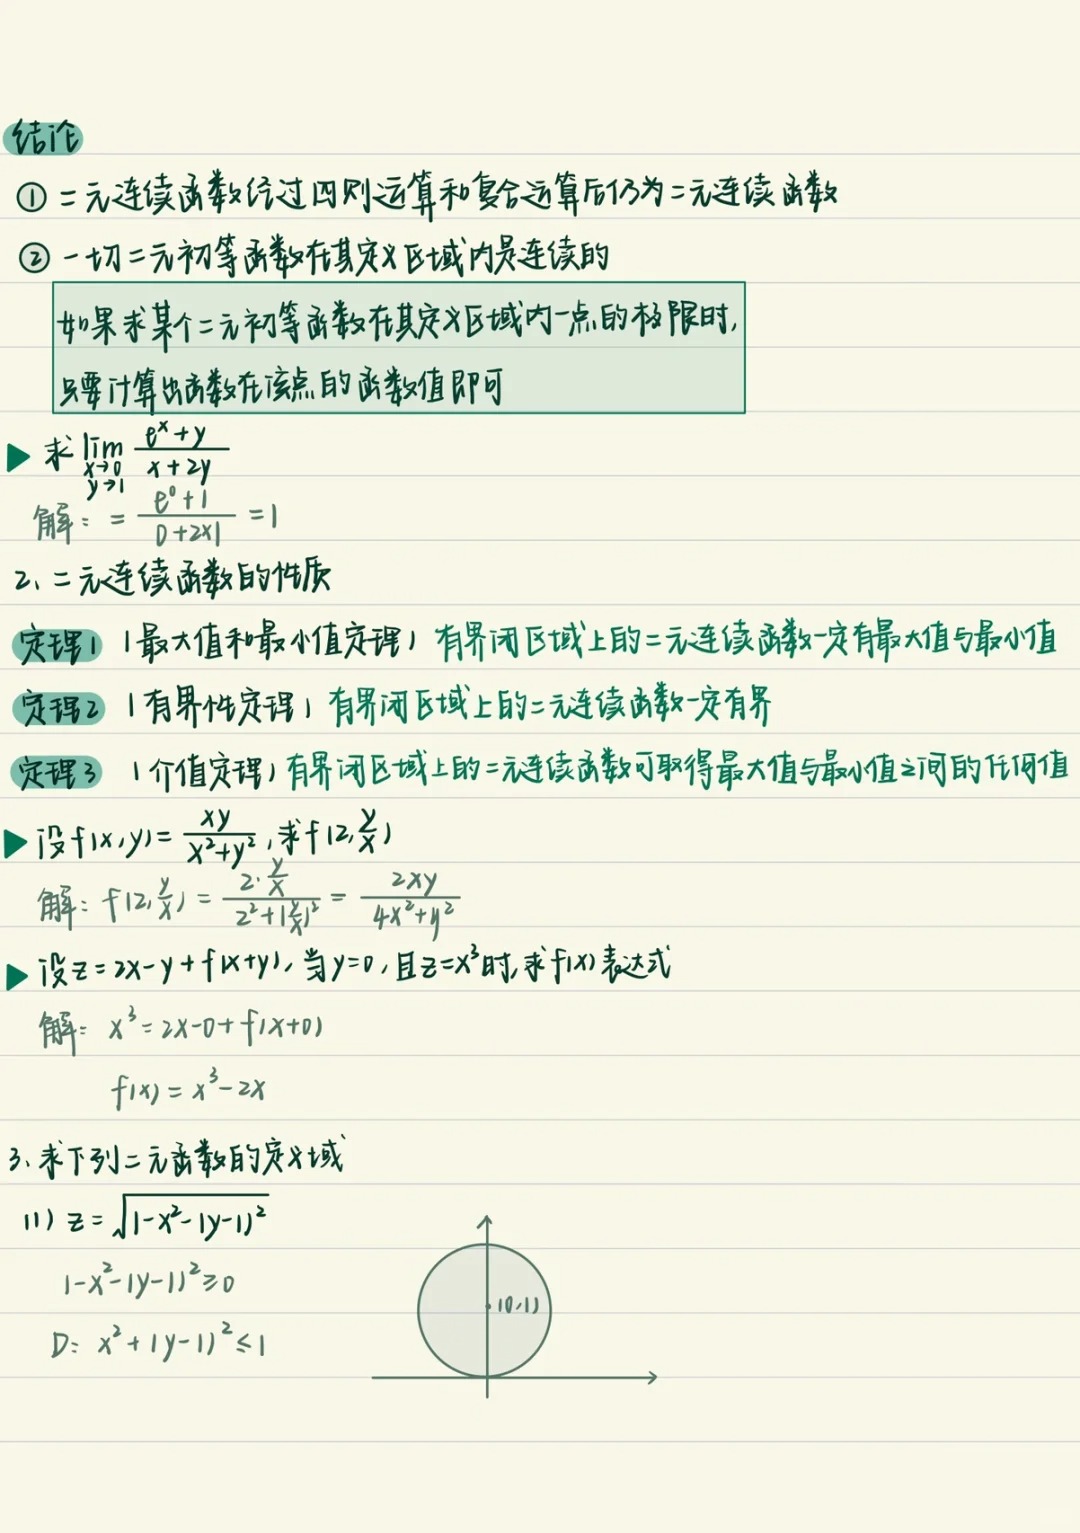 结论
① 二元连续函数经过四则运算和复合运算后仍为二元连续函数
② 一切二元初等函数在其定义区域内是连续的
如果求某个二元初等函数在其定义区域内一点的极限时,
只要计算出函数在该点的函数值即可
▶ 求 lim_{x→0, y→1} (e^x+y)/(x+2y)
解: = (e^0+1)/(0+2×1) = 1
2、二元连续函数的性质
定理1 (最大值和最小值定理) 有界闭区域上的二元连续函数一定有最大值与最小值
定理2 (有界性定理) 有界闭区域上的二元连续函数一定有界
定理3 (介值定理) 有界闭区域上的二元连续函数可取得最大值与最小值之间的任何值
▶ 设f(x,y)= xy/(x²+y²), 求f(2,y/x)
解: f(2,y/x) = (2·y/x)/(2²+(y/x)²) = 2xy/(4x²+y²)
▶ 设z=2x-y+f(x+y), 当y=0, 且z=x³时, 求f(x)表达式
解: x³=2x-0+f(x+0)
f(x)=x³-2x
3、求下列二元函数的定义域
(1) z=√(1-x²-(y-1)²)
1-x²-(y-1)²≥0
(0,1)
D: x²+(y-1)²≤1